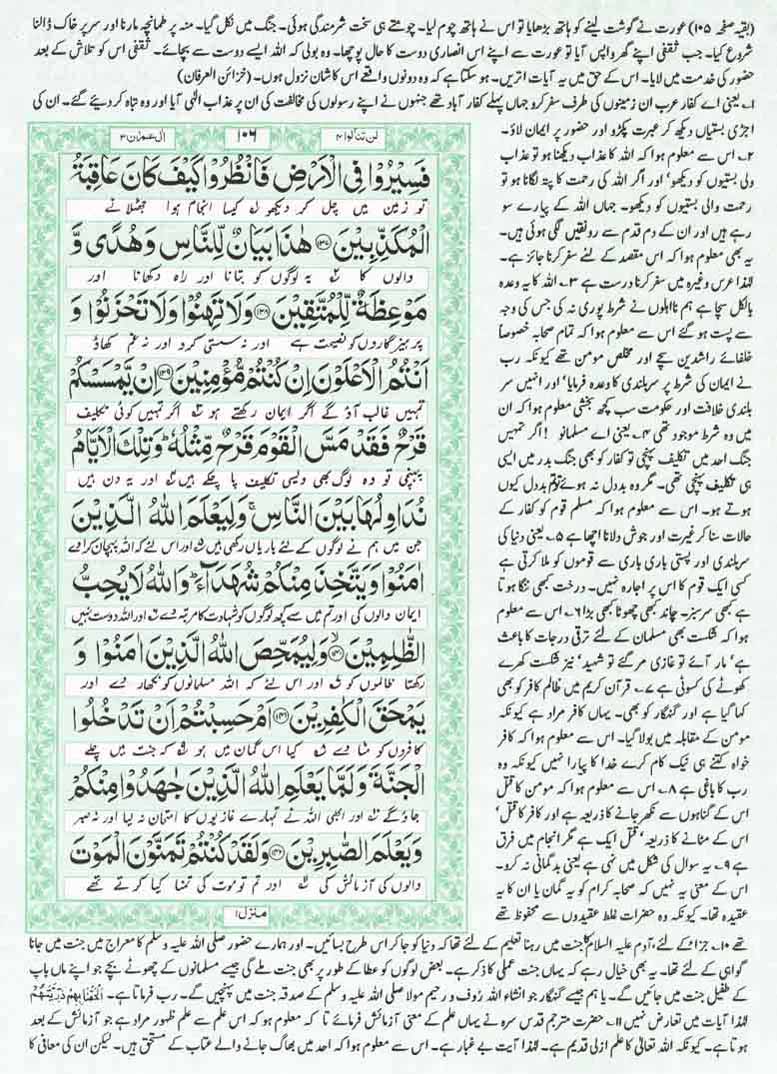 (بقیہ صفحہ ۱۰۵) عورت نے گوشت لینے کو ہاتھ بڑھایا تو اس نے ہاتھ چوم لیا۔ چومتے ہی سخت شرمندگی ہوئی۔ جنگ میں نکل گیا۔ منہ پر طمانچہ مارنا اور سر پر خاک ڈالنا
شروع کیا۔ جب ثقفی اپنے گھر واپس آیا تو عورت سے اپنے اس انصاری دوست کا حال پوچھا۔ وہ بولی کہ اللہ ایسے دوست سے بچائے۔ ثقفی اس کو تلاش کے بعد
حضور کی خدمت میں لایا۔ اس کے حق میں یہ آیات اتریں۔ ہو سکتا ہے کہ وہ دونوں واقعے اس کا شان نزول ہوں۔ (خزائن العرفان)
۱۔ یعنی اے کفار عرب ان زمینوں کی طرف سفر کرو جہاں پہلے کفار آباد تھے جنہوں نے اپنے رسولوں کی مخالفت کی ان پر عذاب الٰہی آیا اور وہ تباہ کر دیئے گئے۔ ان کی
اجڑی بستیاں دیکھ کر عبرت پکڑو اور حضور پر ایمان لاؤ۔
۲۔ اس سے معلوم ہوا کہ اللہ کا عذاب دیکھنا ہو تو عذاب
ولی بستیوں کو دیکھو‘ اور اگر اللہ کی رحمت کا پتہ لگانا ہو تو
رحمت والی بستیوں کو دیکھو۔ جہاں اللہ کے پیارے سو
رہے ہیں اور ان کے دم قدم سے رونقیں لگی ہوئی ہیں۔
یہ بھی معلوم ہوا کہ اس مقصد کے لئے سفر کرنا جائز ہے۔
لہٰذا عرس وغیرہ میں سفر کرنا درست ہے ۳۔ اللہ کا یہ وعدہ
بالکل سچا ہے ہم نااہلوں نے شرط پوری نہ کی جس کی وجہ
سے پست ہو گئے اس سے معلوم ہوا کہ تمام صحابہ خصوصاً
خلفائے راشدین سچے اور مخلص مومن تھے کیونکہ رب
نے ایمان کی شرط پر سربلندی کا وعدہ فرمایا‘ اور انہیں سر
بلندی خلافت اور حکومت سب کچھ بخشی معلوم ہوا کہ ان
میں وہ شرط موجود تھی ۴۔ یعنی اے مسلمانو ! اگر تمہیں
جنگ احد میں تکلیف پہنچی تو کفار کو بھی جنگ بدر میں ایسی
ہی تکلیف پہنچی تھی۔ مگر وہ بددل نہ ہوئے تو تم بددل کیوں
ہوتے ہو۔ اس سے معلوم ہوا کہ مسلم قوم کو کفار کے
حالات سنا کر غیرت اور جوش دلانا اچھا ہے ۵۔ یعنی دنیا کی
سربلندی اور پستی باری باری سے قوموں کو ملا کرتی ہے
کسی ایک قوم کا اس پر اجارہ نہیں۔ درخت کبھی ننگا ہوتا
ہے کبھی سرسبز۔ چاند کبھی چھوٹا کبھی بڑا ۶۔ اس سے معلوم
ہوا کہ شکست بھی مسلمان کے لئے ترقی درجات کا باعث
ہے‘ مار آئے تو غازی مر گئے تو شہید‘ نیز شکست کھرے
کھوٹے کی کسوٹی ہے ۷۔ قرآن کریم میں ظالم کافر کو بھی
کہا گیا ہے اور گنہگار کو بھی۔ یہاں کافر مراد ہے کیونکہ
مومن کے مقابلہ میں بولا گیا۔ اس سے معلوم ہوا کہ کافر
خواہ کتنے ہی نیک کام کرے خدا کا پیارا نہیں کیونکہ وہ
رب کا باغی ہے ۸۔ اس سے معلوم ہوا کہ مومن کا قتل
اس کے گناہوں سے نکھر جانے کا ذریعہ ہے اور کافر کا قتل‘
اس کے مٹانے کا ذریعہ‘ قتل ایک ہے مگر انجام میں فرق
ہے ۹۔ یہ سوال کی شکل میں نہی ہے یعنی بدگمانی نہ کرو۔
اس کے معنی یہ نہیں کہ صحابہ کرام کو یہ گمان یا ان کا یہ
عقیدہ تھا۔ کیونکہ وہ حضرات غلط عقیدوں سے محفوظ تھے
لن تنالوا ۴ ۱۰۶ ال عمران ۳
فَسِيْرُوْا فِي الْاَرْضِ فَانْظُرُوْا كَيْفَ كَانَ عَاقِبَةُ
تو زمین میں چل کر دیکھو لے کیسا انجام ہوا جھٹلانے
الْمُكَذِّبِيْنَ ﴿۱۳۷﴾ هٰذَا بَيَانٌ لِّلنَّاسِ وَهُدًى وَّ
والوں کا ۲ یہ لوگوں کو بتانا اور راہ دکھانا اور
مَوْعِظَةٌ لِّلْمُتَّقِيْنَ ﴿۱۳۸﴾ وَلَا تَهِنُوْا وَلَا تَحْزَنُوْا وَ
پرہیزگاروں کو نصیحت ہے اور نہ سستی کرو اور نہ غم کھاؤ
اَنْتُمُ الْاَعْلَوْنَ اِنْ كُنْتُمْ مُّؤْمِنِيْنَ ﴿۱۳۹﴾ اِنْ يَّمْسَسْكُمْ
تمہیں غالب آؤ گے اگر ایمان رکھتے ہو ۳ اگر تمہیں کوئی تکلیف
قَرْحٌ فَقَدْ مَسَّ الْقَوْمَ قَرْحٌ مِّثْلُهٗ ؕ وَتِلْكَ الْاَيَّامُ
پہنچی تو وہ لوگ بھی ویسی تکلیف پا چکے ہیں ۴ اور یہ دن ہیں
نُدَاوِلُهَا بَيْنَ النَّاسِ ۚ وَلِيَعْلَمَ اللّٰهُ الَّذِيْنَ
جن میں ہم نے لوگوں کے لئے باریاں رکھی ہیں ۵ اور اس لئے کہ اللہ پہچان کرا دے
اٰمَنُوْا وَيَتَّخِذَ مِنْكُمْ شُهَدَآءَ ؕ وَاللّٰهُ لَا يُحِبُّ
ایمان والوں کی اور تم میں سے کچھ لوگوں کو شہادت کا مرتبہ دے ۶ اور اللہ دوست نہیں
الظّٰلِمِيْنَ ﴿۱۴۰﴾ وَلِيُمَحِّصَ اللّٰهُ الَّذِيْنَ اٰمَنُوْا وَ
رکھتا ظالموں کو ۷ اور اس لئے کہ اللہ مسلمانوں کو نکھار دے اور
يَمْحَقَ الْكٰفِرِيْنَ ﴿۱۴۱﴾ اَمْ حَسِبْتُمْ اَنْ تَدْخُلُوا
کافروں کو مٹا دے ۸ کیا اس گمان میں ہو ۹ کہ جنت میں چلے
الْجَنَّةَ وَلَمَّا يَعْلَمِ اللّٰهُ الَّذِيْنَ جٰهَدُوْا مِنْكُمْ
جاؤ گے ۱۰ اور ابھی اللہ نے تمہارے غازیوں کا امتحان نہ لیا اور نہ صبر
وَيَعْلَمَ الصّٰبِرِيْنَ ﴿۱۴۲﴾ وَلَقَدْ كُنْتُمْ تَمَنَّوْنَ الْمَوْتَ
والوں کی آزمائش کی ۱۱ اور تم تو موت کی تمنا کیا کرتے تھے
منزل ۱
تھے ۱۰۔ جزا کے لئے۔ آدم علیہ السلام کا جنت میں رہنا تعلیم کے لئے تھا کہ دنیا کو جا کر اس طرح بسائیں۔ اور ہمارے حضور صلی اللہ علیہ وسلم کا معراج میں جنت میں جانا
گواہی کے لئے تھا۔ یہ بھی خیال رہے کہ یہاں جنت عملی کا ذکر ہے۔ بعض لوگوں کو عطا کے طور پر بھی جنت ملے گی جیسے مسلمانوں کے چھوٹے بچے جو اپنے ماں باپ
کے طفیل جنت میں جائیں گے۔ یا ہم جیسے گنہگار جو انشاء اللہ رؤف و رحیم مولا صلی اللہ علیہ وسلم کے صدقہ جنت میں پہنچیں گے۔ رب فرماتا ہے۔ اَلْحَقْنَا بِهِمْ ذُرِّيَّتَهُمْ
لہٰذا آیات میں تعارض نہیں ۱۱۔ حضرت مترجم قدس سرہ نے یہاں علم کے معنی آزمائش فرمائے تا کہ معلوم ہو کہ اس علم سے علم ظہور مراد ہے جو آزمائش کے بعد
ہوتا ہے۔ کیونکہ اللہ تعالیٰ کا علم ازلی قدیم ہے۔ لہٰذا آیت بے غبار ہے۔ اس سے معلوم ہوا کہ احد میں بھاگ جانے والے عتاب کے مستحق ہیں۔ لیکن ان کی معافی کا